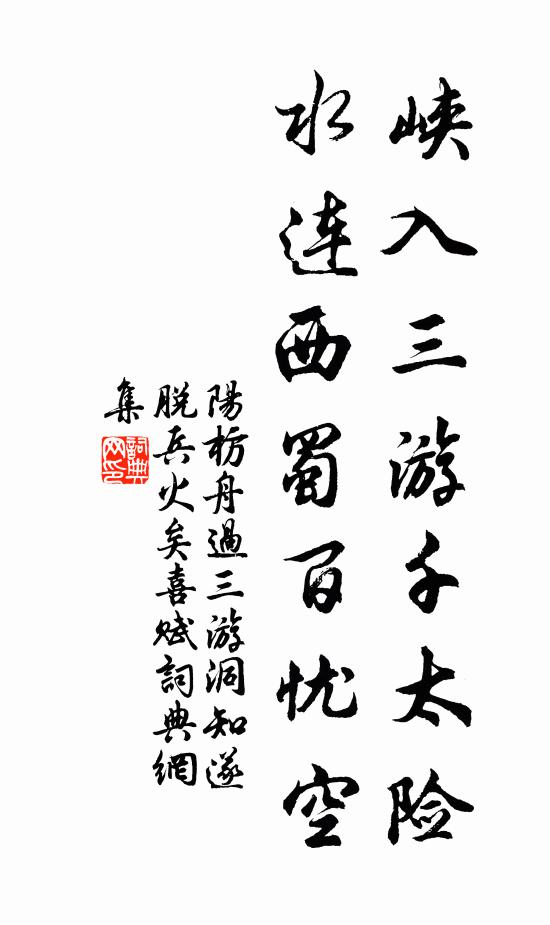 峡入三游千太险
水连西蜀百忧空
陽枋舟過三游洞知遂
脱兵火矣喜赋詞典網
集
詞典
网印